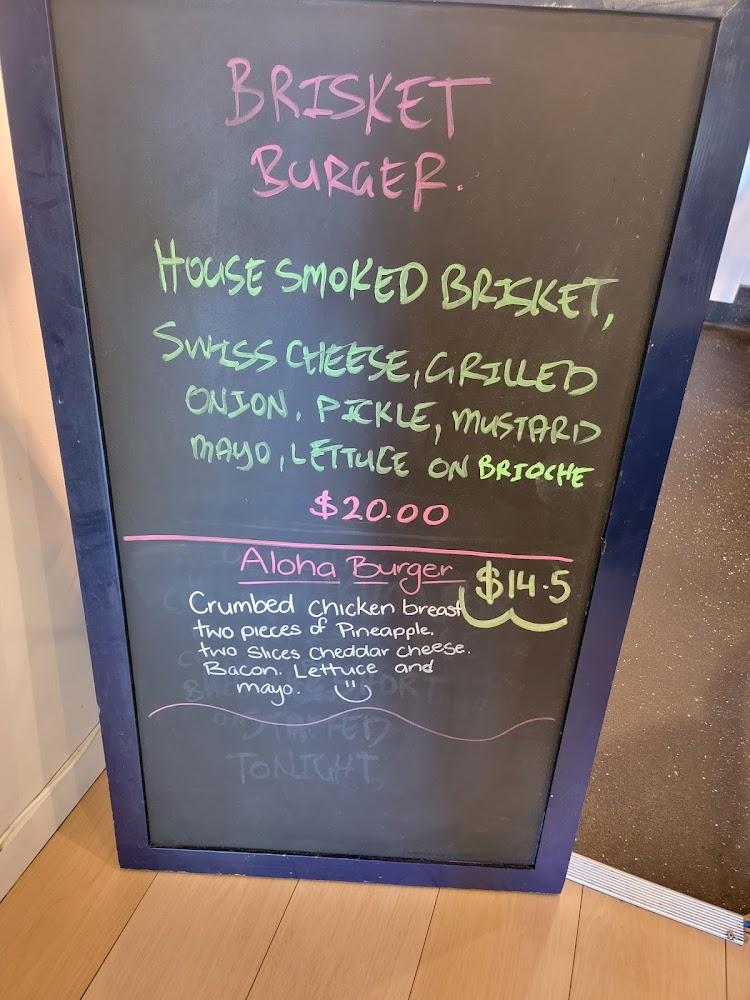 BRISKET
BURGER.
HOUSE SMOKED BRISKET,
SWISS CHEESE, GRILLED
ONION, PICKLE, MUSTARD
MAYO, LETTUCE ON BRIOCHE
$20.00
Aloha Burger $14.5
Crumbed chicken breast
two pieces of Pineapple.
two slices cheddar cheese.
Bacon. Lettuce and
mayo.
STARTED
TONIGHT